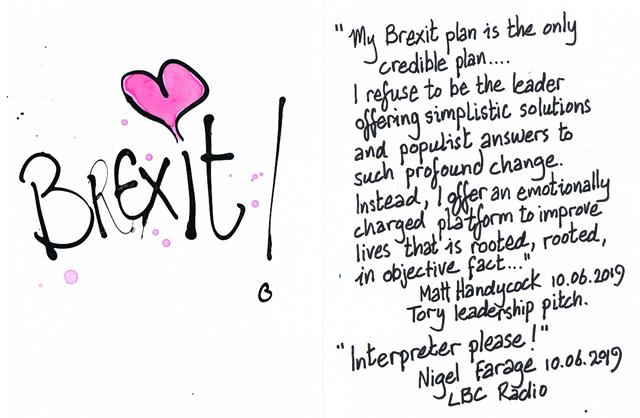 BREXIT!
"My Brexit plan is the only
credible plan....
I refuse to be the leader
offering simplistic solutions
and populist answers to
such profound change.
Instead, I offer an emotionally
charged platform to improve
lives that is rooted, rooted,
in objective fact..."
Matt Handycock 10.06.2019
Tory leadership pitch.
"Interpreter please!"
Nigel Farage 10.06.2019
LBC Radio